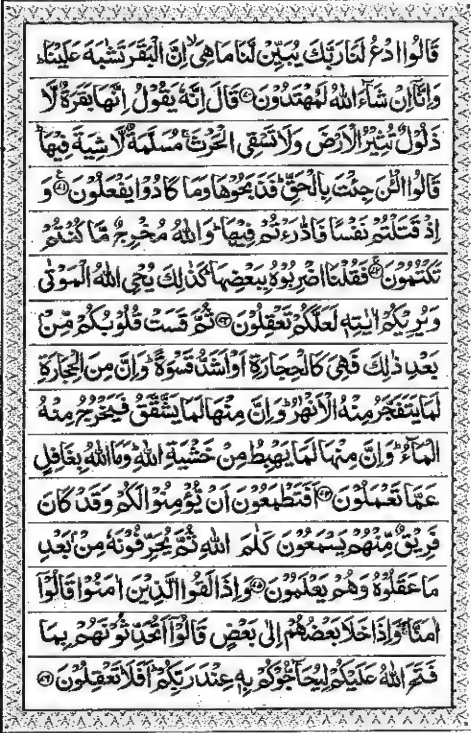 قَالُوا ادْعُ لَنَا رَبَّكَ يُبَيِّنْ لَّنَا مَا هِىَ ۙ اِنَّ الْبَقَرَ تَشٰبَهَ عَلَيْنَا ؕ
وَاِنَّاۤ اِنْ شَآءَ اللّٰهُ لَمُهْتَدُوْنَ ﴿۷۰﴾ قَالَ اِنَّهٗ يَقُوْلُ اِنَّهَا بَقَرَةٌ لَّا
ذَلُوْلٌ تُثِيْرُ الْاَرْضَ وَلَا تَسْقِى الْحَرْثَ ۚ مُسَلَّمَةٌ لَّا شِيَةَ فِيْهَا ؕ
قَالُوا الْـٰٔنَ جِئْتَ بِالْحَقِّ ؕ فَذَبَحُوْهَا وَمَا كَادُوْا يَفْعَلُوْنَ ﴿۷۱﴾ وَ
اِذْ قَتَلْتُمْ نَفْسًا فَادّٰرَءْتُمْ فِيْهَا ؕ وَاللّٰهُ مُخْرِجٌ مَّا كُنْتُمْ
تَكْتُمُوْنَ ﴿۷۲﴾ فَقُلْنَا اضْرِبُوْهُ بِبَعْضِهَا ؕ كَذٰلِكَ يُحْىِ اللّٰهُ الْمَوْتٰى
وَيُرِيْكُمْ اٰيٰتِهٖ لَعَلَّكُمْ تَعْقِلُوْنَ ﴿۷۳﴾ ثُمَّ قَسَتْ قُلُوْبُكُمْ مِّنْۢ
بَعْدِ ذٰلِكَ فَهِىَ كَالْحِجَارَةِ اَوْ اَشَدُّ قَسْوَةً ؕ وَاِنَّ مِنَ الْحِجَارَةِ
لَمَا يَتَفَجَّرُ مِنْهُ الْاَنْهٰرُ ؕ وَاِنَّ مِنْهَا لَمَا يَشَّقَّقُ فَيَخْرُجُ مِنْهُ
الْمَآءُ ؕ وَاِنَّ مِنْهَا لَمَا يَهْبِطُ مِنْ خَشْيَةِ اللّٰهِ ؕ وَمَا اللّٰهُ بِغَافِلٍ
عَمَّا تَعْمَلُوْنَ ﴿۷۴﴾ اَفَتَطْمَعُوْنَ اَنْ يُّؤْمِنُوْا لَكُمْ وَقَدْ كَانَ
فَرِيْقٌ مِّنْهُمْ يَسْمَعُوْنَ كَلٰمَ اللّٰهِ ثُمَّ يُحَرِّفُوْنَهٗ مِنْۢ بَعْدِ
مَا عَقَلُوْهُ وَهُمْ يَعْلَمُوْنَ ﴿۷۵﴾ وَاِذَا لَقُوا الَّذِيْنَ اٰمَنُوْا قَالُوْۤا
اٰمَنَّا ۖۚ وَاِذَا خَلَا بَعْضُهُمْ اِلٰى بَعْضٍ قَالُوْۤا اَتُحَدِّثُوْنَهُمْ بِمَا
فَتَحَ اللّٰهُ عَلَيْكُمْ لِيُحَآجُّوْكُمْ بِهٖ عِنْدَ رَبِّكُمْ ؕ اَفَلَا تَعْقِلُوْنَ ﴿۷۶﴾